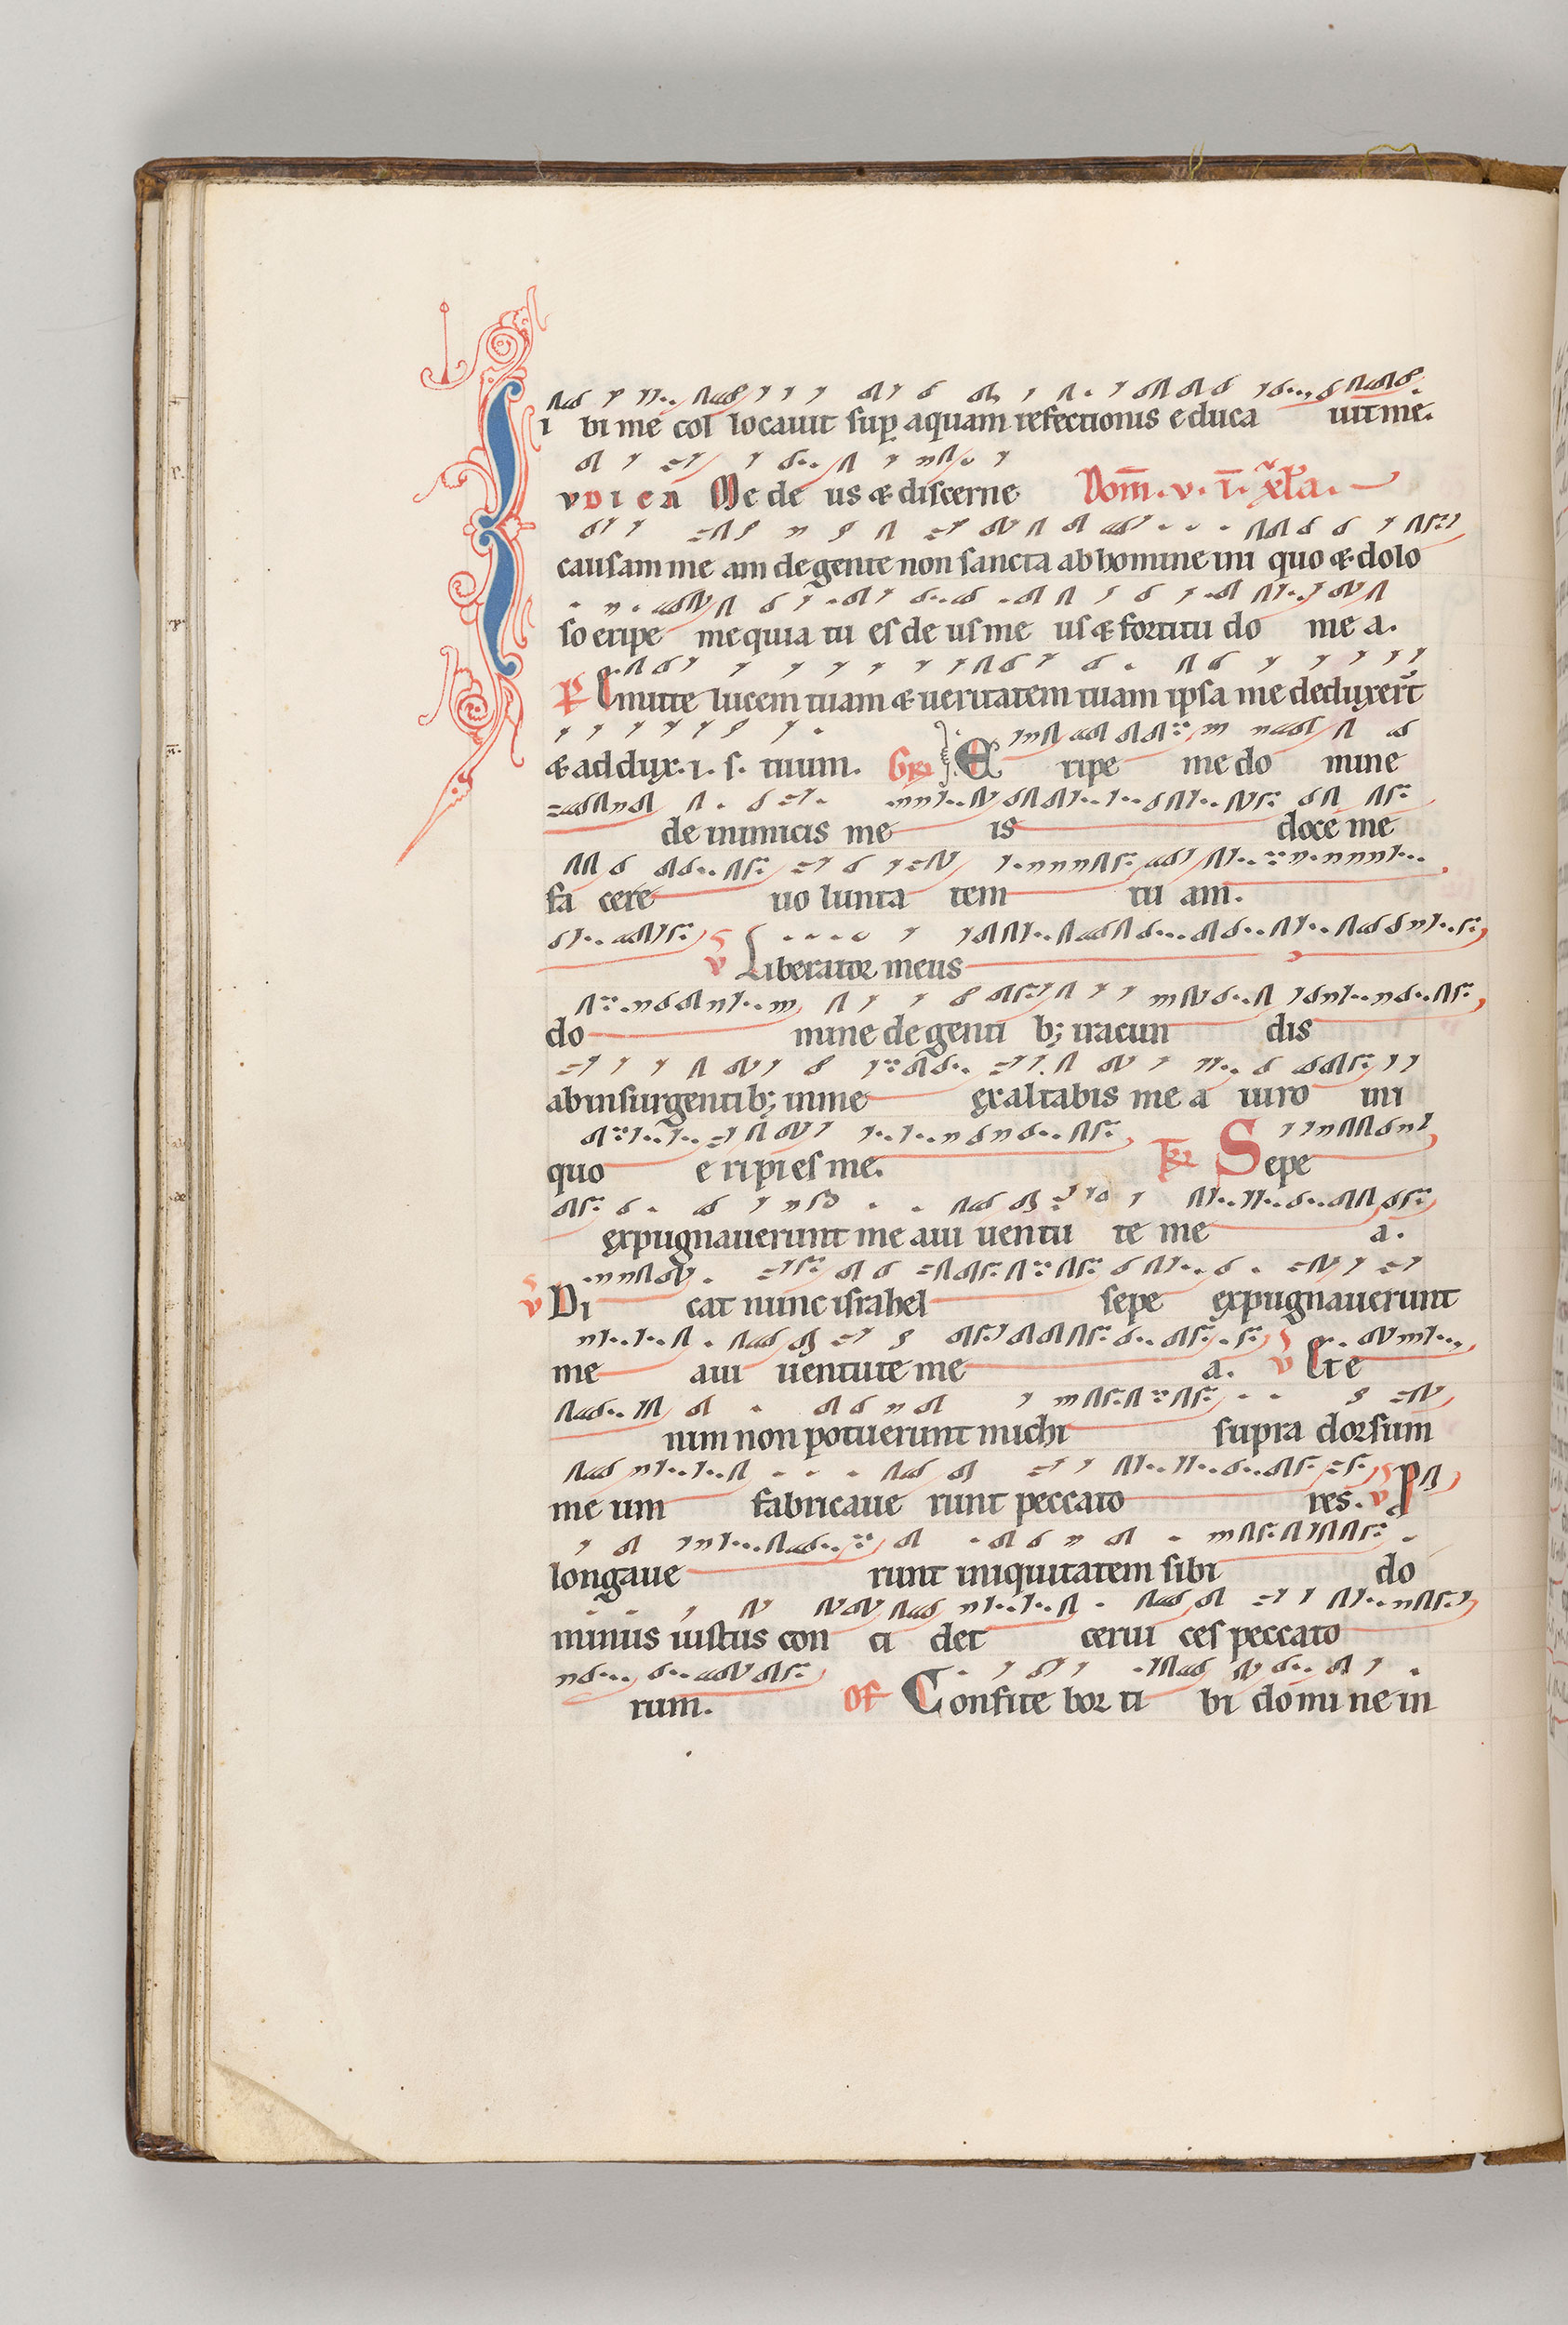 i bi me col locauit sup aquam refectionis educa uit me.
I VDICA Me de us & discerne Dom. v. i. xl'a.
causam me am de gente non sancta ab homine ini quo & dolo
so eripe me quia tu es de us me us & fortitu do me a.
P Emitte lucem tuam & ueritatem tuam ipsa me deduxert
& addux. i. s. tuum. GR E ripe me do mine
de inimicis me is doce me
fa cere uo lunta tem tu am.
V Liberator meus
do mine de genti b; iracun dis
ab insurgentib; in me exaltabis me a iuro ini
quo e ripi es me. TR Sepe
expugnauerunt me a iui uentu te me a.
V Di cat nunc israhel sepe expugnauerunt
me a iui uentute me a. V Et e
nim non potuerunt michi supra dorsum
me um fabricaue runt peccato res. V P
longaue runt iniquitatem sibi do
minus iustus con ci det cerui ces peccato
rum. OF Confite bor ti bi domi ne in